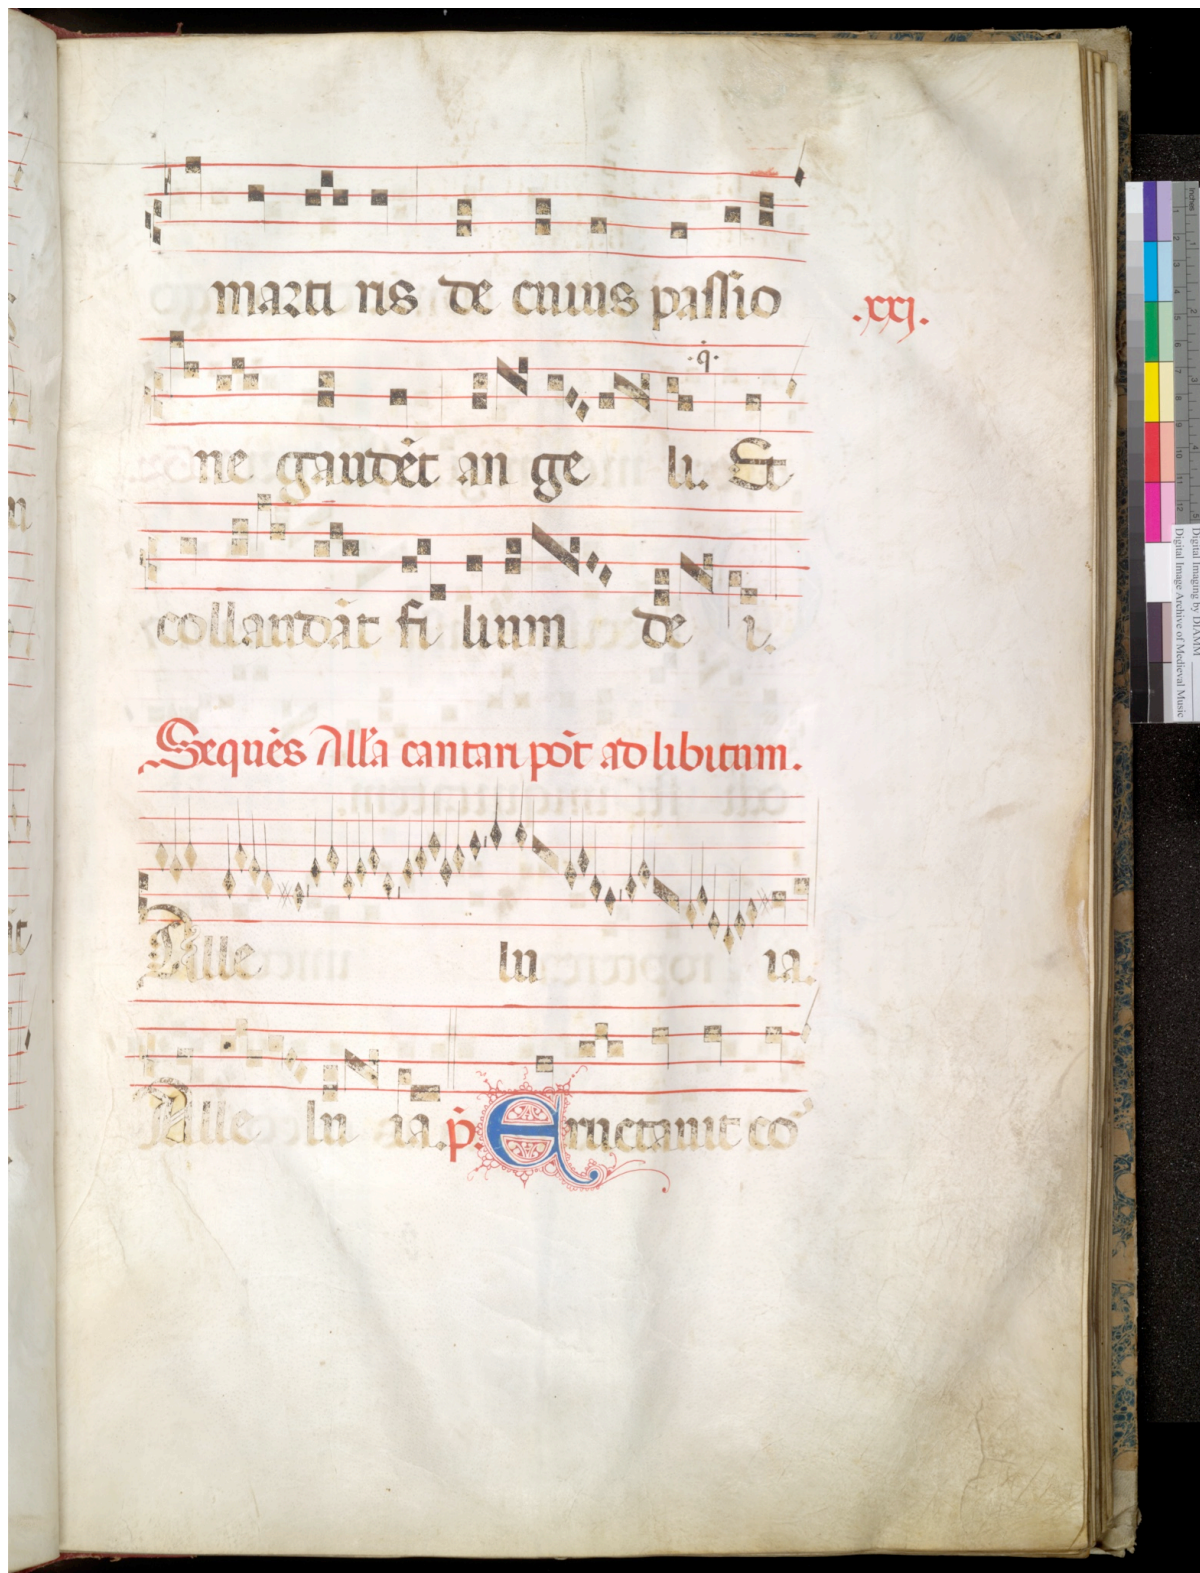 marti ris de cuius passio
.xxj.
.q̇.
ne gaudēt an ge li. Et
collaudāt fi lium de i.
Sequēs All'a cantari pōt ad libitum.
Alle lu ia.
Alle lu ia. p̄. Eructauit co
Digital Imaging by DIAMM
Digital Image Archive of Medieval Music